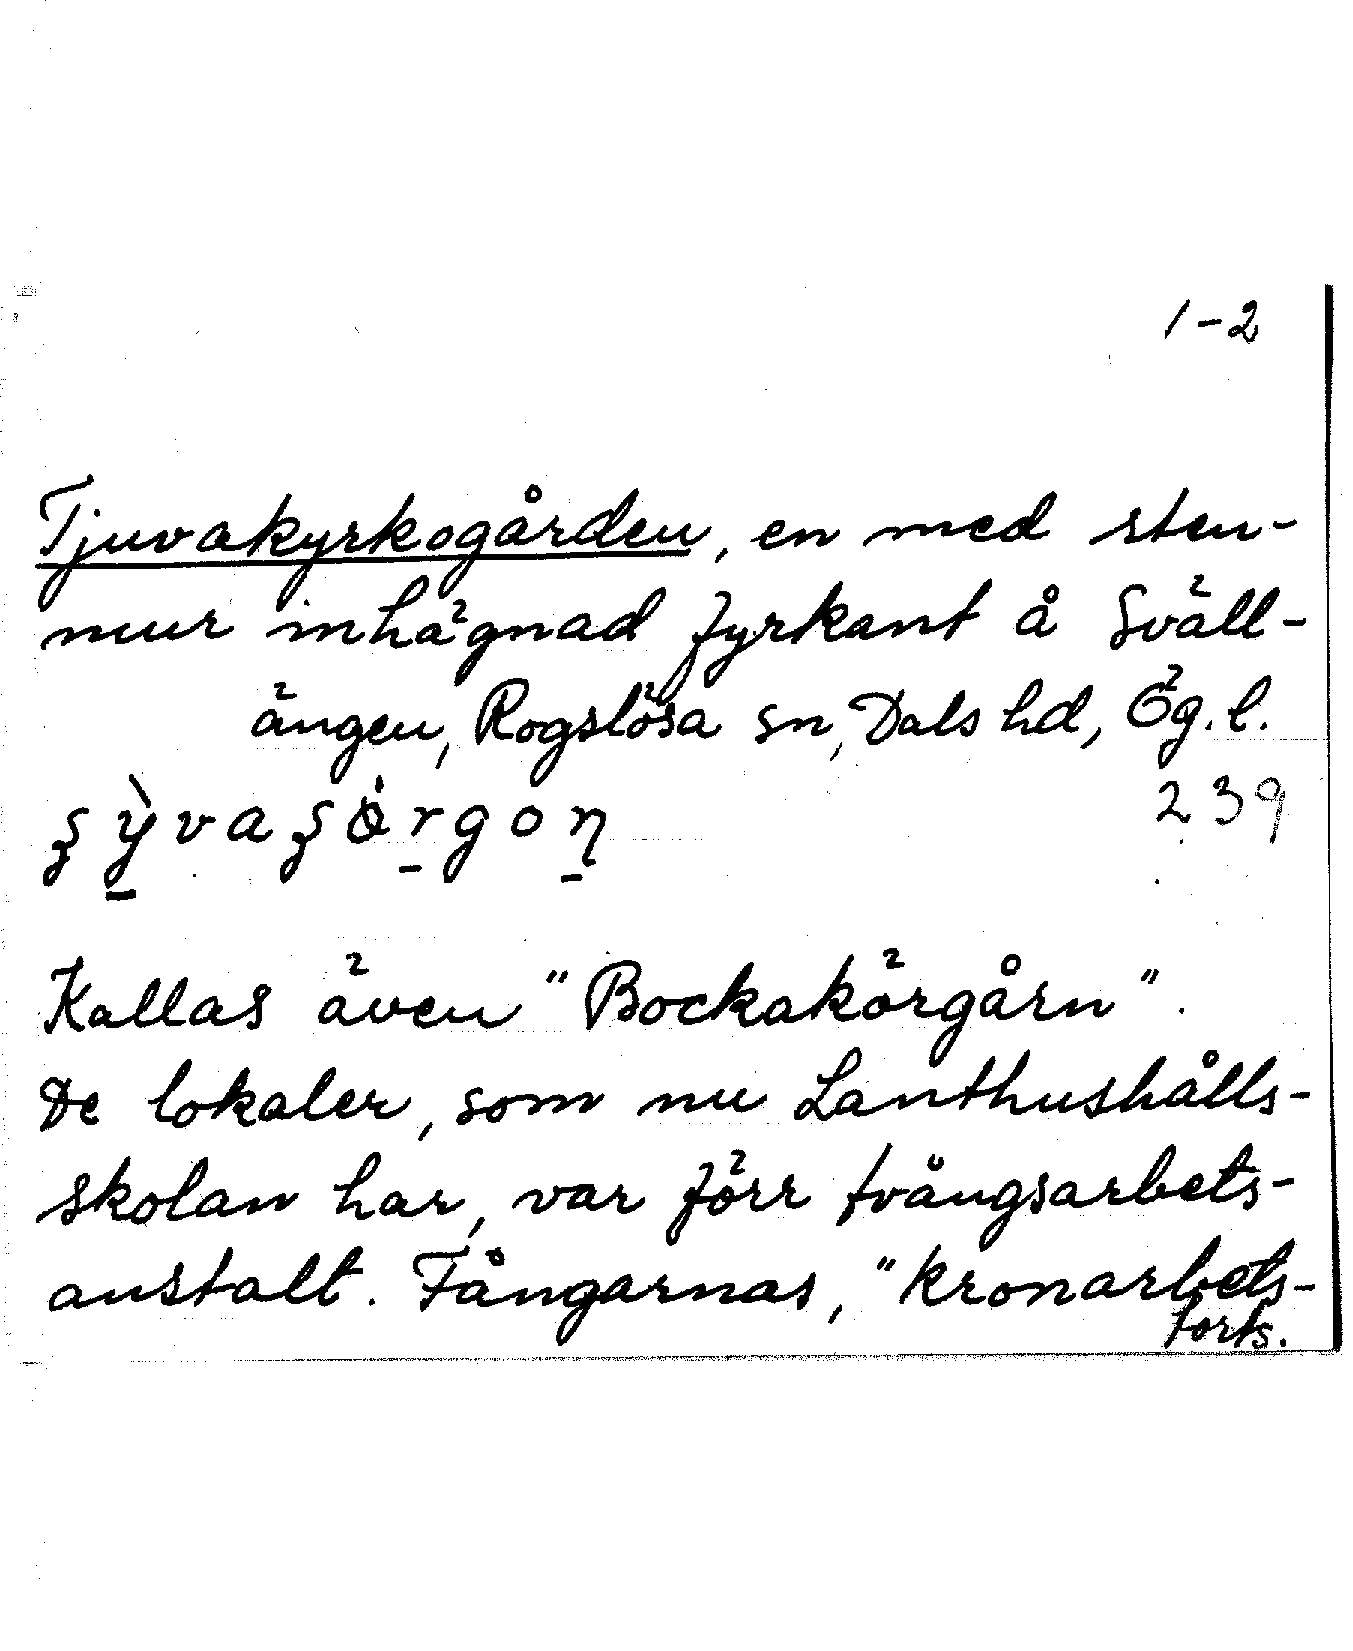 1-2
Tjuvakyrkogården, en med sten-
mur inhägnad fyrkant å Sväll-
ängen, Rogslösa sn, Dals hd, Ög. l.
239
Kallas även "Bockakörgårn".
De lokaler, som nu Lanthushålls-
skolan har, var förr tvångsarbets-
anstalt. Fångarnas, "kronarbets-
forts.